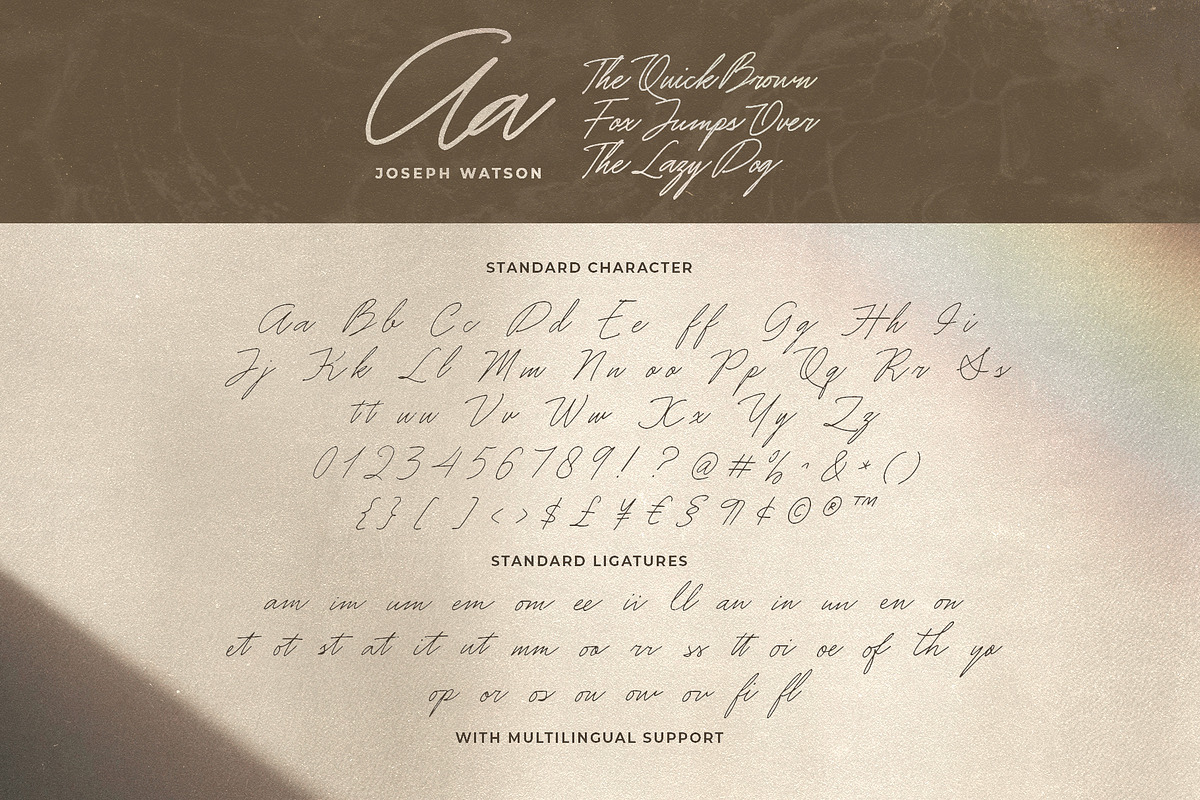 Aa
JOSEPH WATSON
The Quick Brown
Fox Jumps Over
The Lazy Dog
STANDARD CHARACTER
Aa Bb Cc Dd Ee ff Gg Hh Ii
Jj Kk Ll Mm Nn oo Pp Qq Rr Ss
tt uu Vv Ww Xx Yy Zz
0123456789!?@#%^&*()
{}[]<>$£¥€§¶¢©®™
STANDARD LIGATURES
am im um em om ee ii ll an in un en on
et ot st at it ut mm oo rr ss tt oi oe of th yo
op or os ou ow ov fi fl
WITH MULTILINGUAL SUPPORT